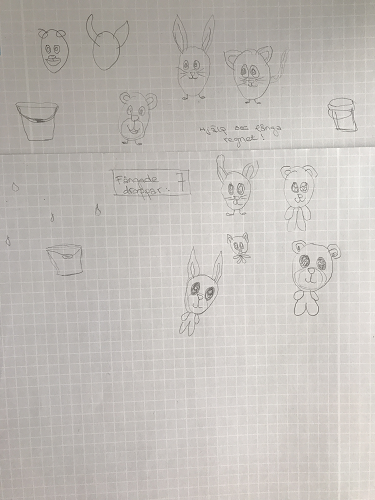 Hjälp oss fånga
regnet!
Fångade 7
droppar: